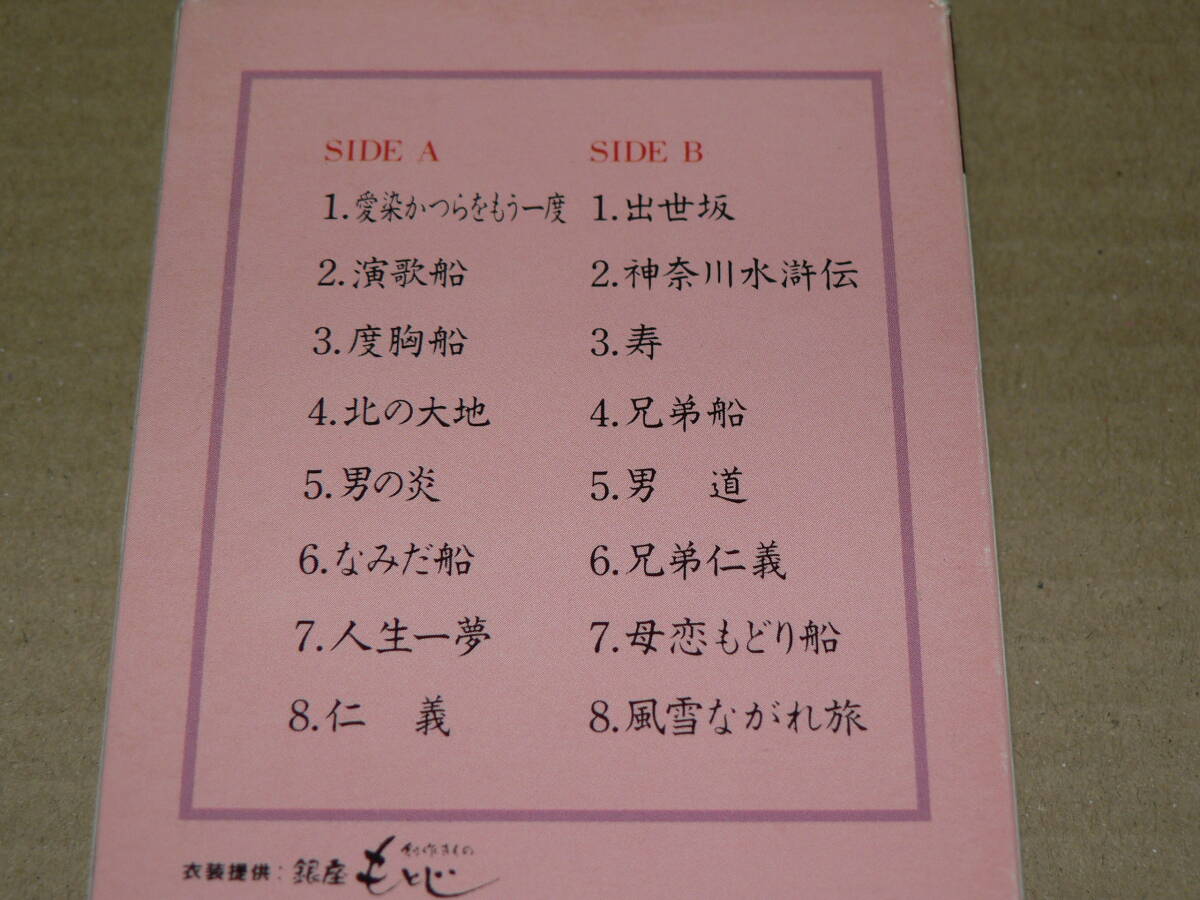 SIDE A
1.愛染かつらをもう一度
2.演歌船
3.度胸船
4.北の大地
5.男の炎
6.なみだ船
7.人生一夢
8.仁　義
SIDE B
1.出世坂
2.神奈川水滸伝
3.寿
4.兄弟船
5.男　道
6.兄弟仁義
7.母恋もどり船
8.風雪ながれ旅
衣装提供：銀座 創作きもの もとじ